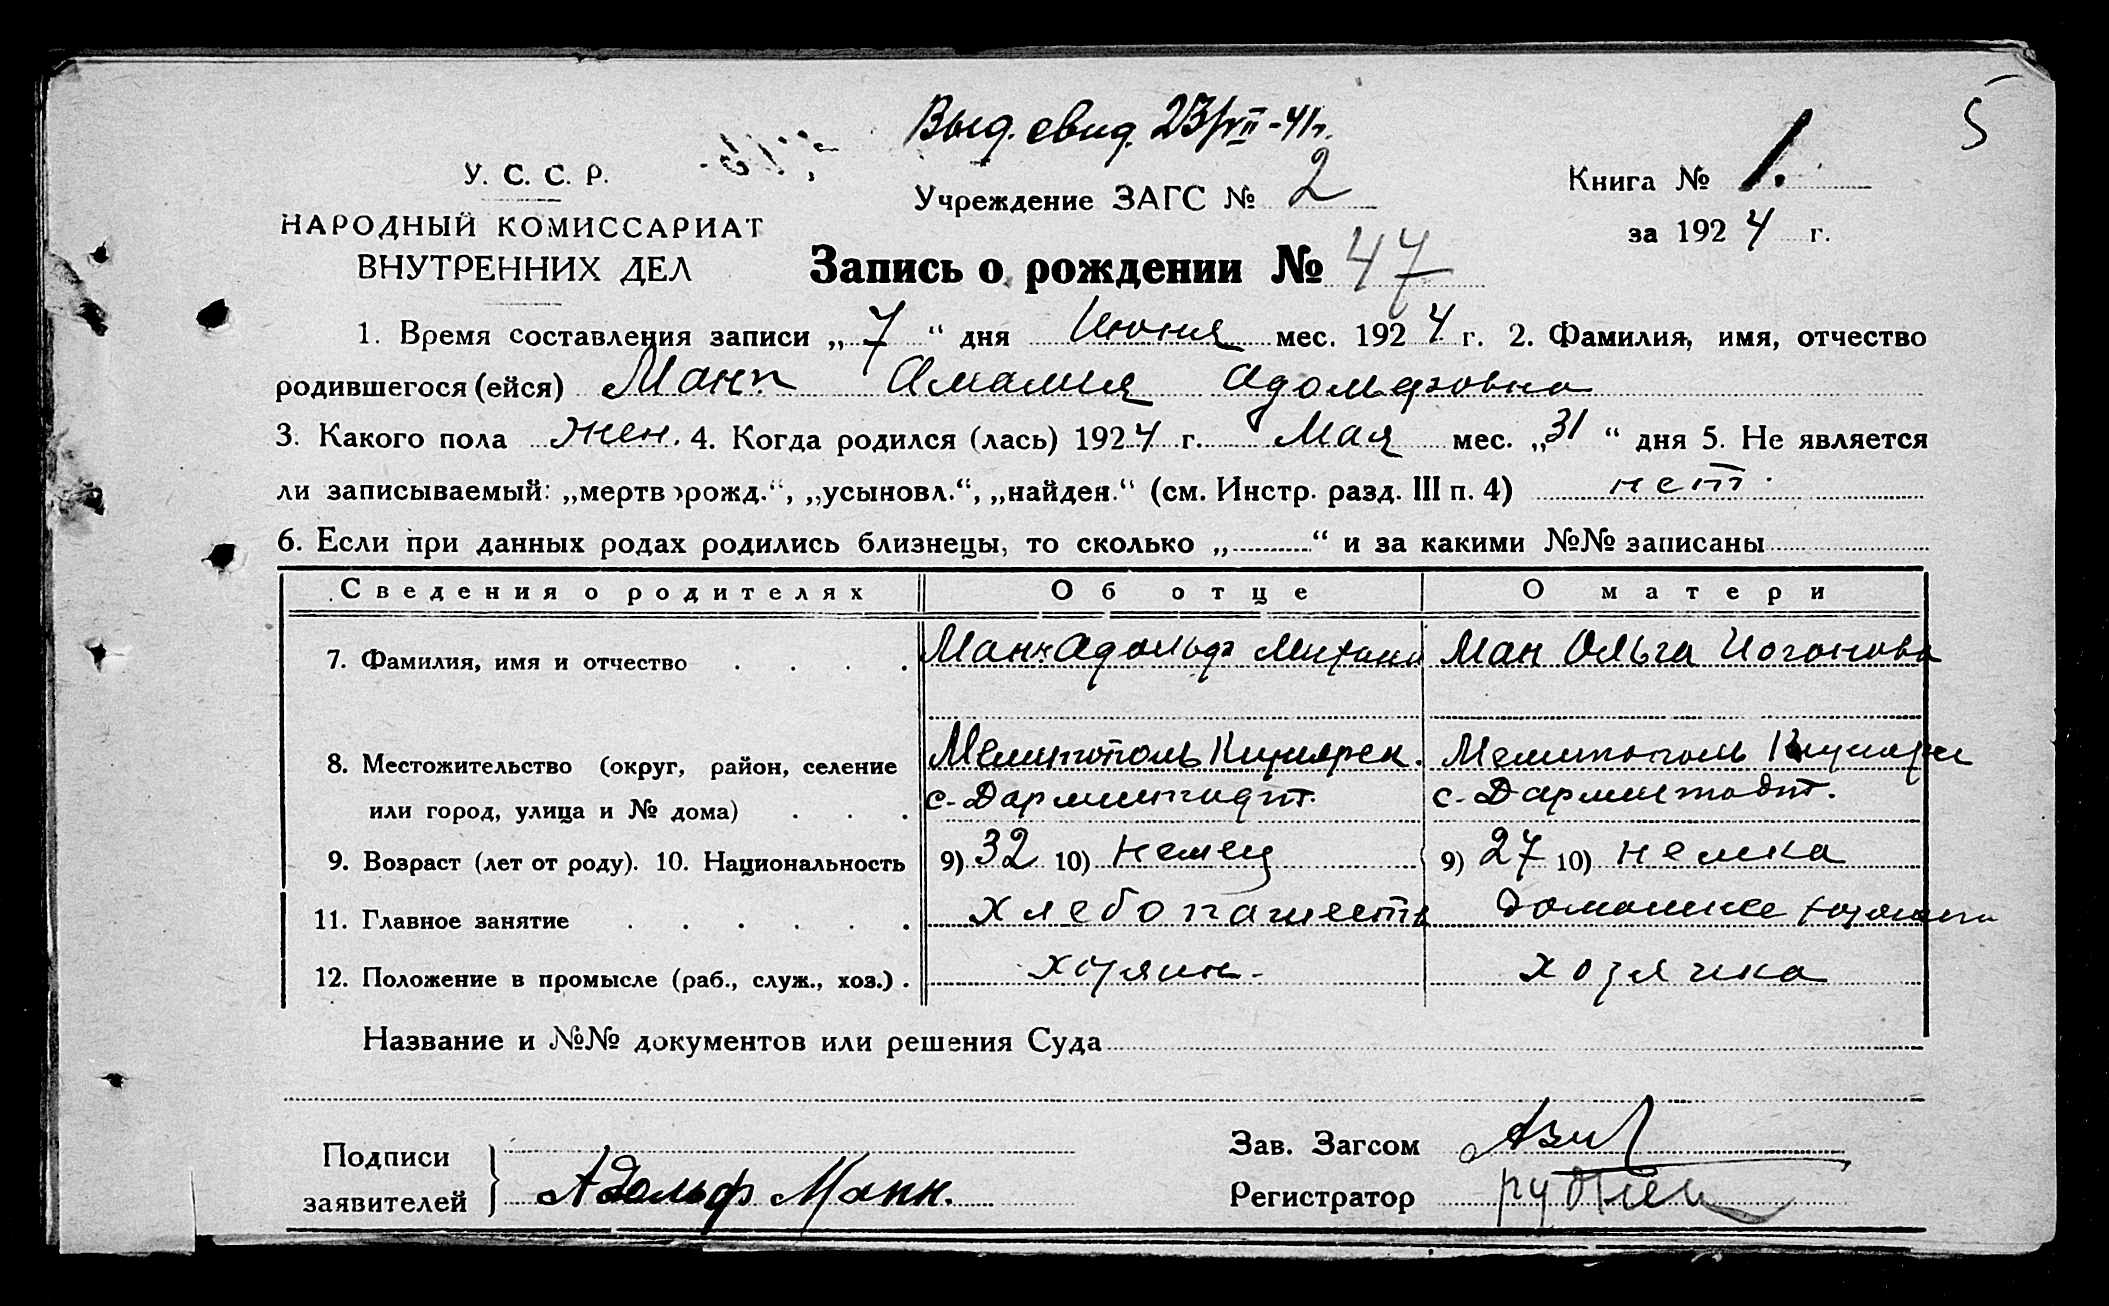 5
Выд. свид. 23/VII-41г.
У. С. С. Р.
НАРОДНЫЙ КОМИССАРИАТ
ВНУТРЕННИХ ДЕЛ
Учреждение ЗАГС № 2
Книга № 1.
за 1924 г.
Запись о рождении № 47
1. Время составления записи „7“ дня Июня мес. 1924 г. 2. Фамилия, имя, отчество
родившегося (ейся) Манн Амалия Адольфовна
3. Какого пола жен. 4. Когда родился (лась) 1924 г. Мая мес. „31“ дня 5. Не является
ли записываемый: „мертворожд.“, „усыновл.“, „найден.“ (см. Инстр. разд. III п. 4) нет.
6. Если при данных родах родились близнецы, то сколько „..........“ и за какими №№ записаны
Сведения о родителях Об отце О матери
7. Фамилия, имя и отчество . . . . Манн Адольф Ман Ольга Иоганова
8. Местожительство (округ, район, селение Мелитополь Мелитополь
или город, улица и № дома) . . . с. Дармштадт. с. Дармштадт.
9. Возраст (лет от роду). 10. Национальность 9) 32 10) немец 9) 27 10) немка
11. Главное занятие . . . . . . хлебопашеств домашнее
12. Положение в промысле (раб., служ., хоз.) . хозяин. хозяйка
Название и №№ документов или решения Суда
Подписи
заявителей } Адольф Манн.
Зав. Загсом
Регистратор